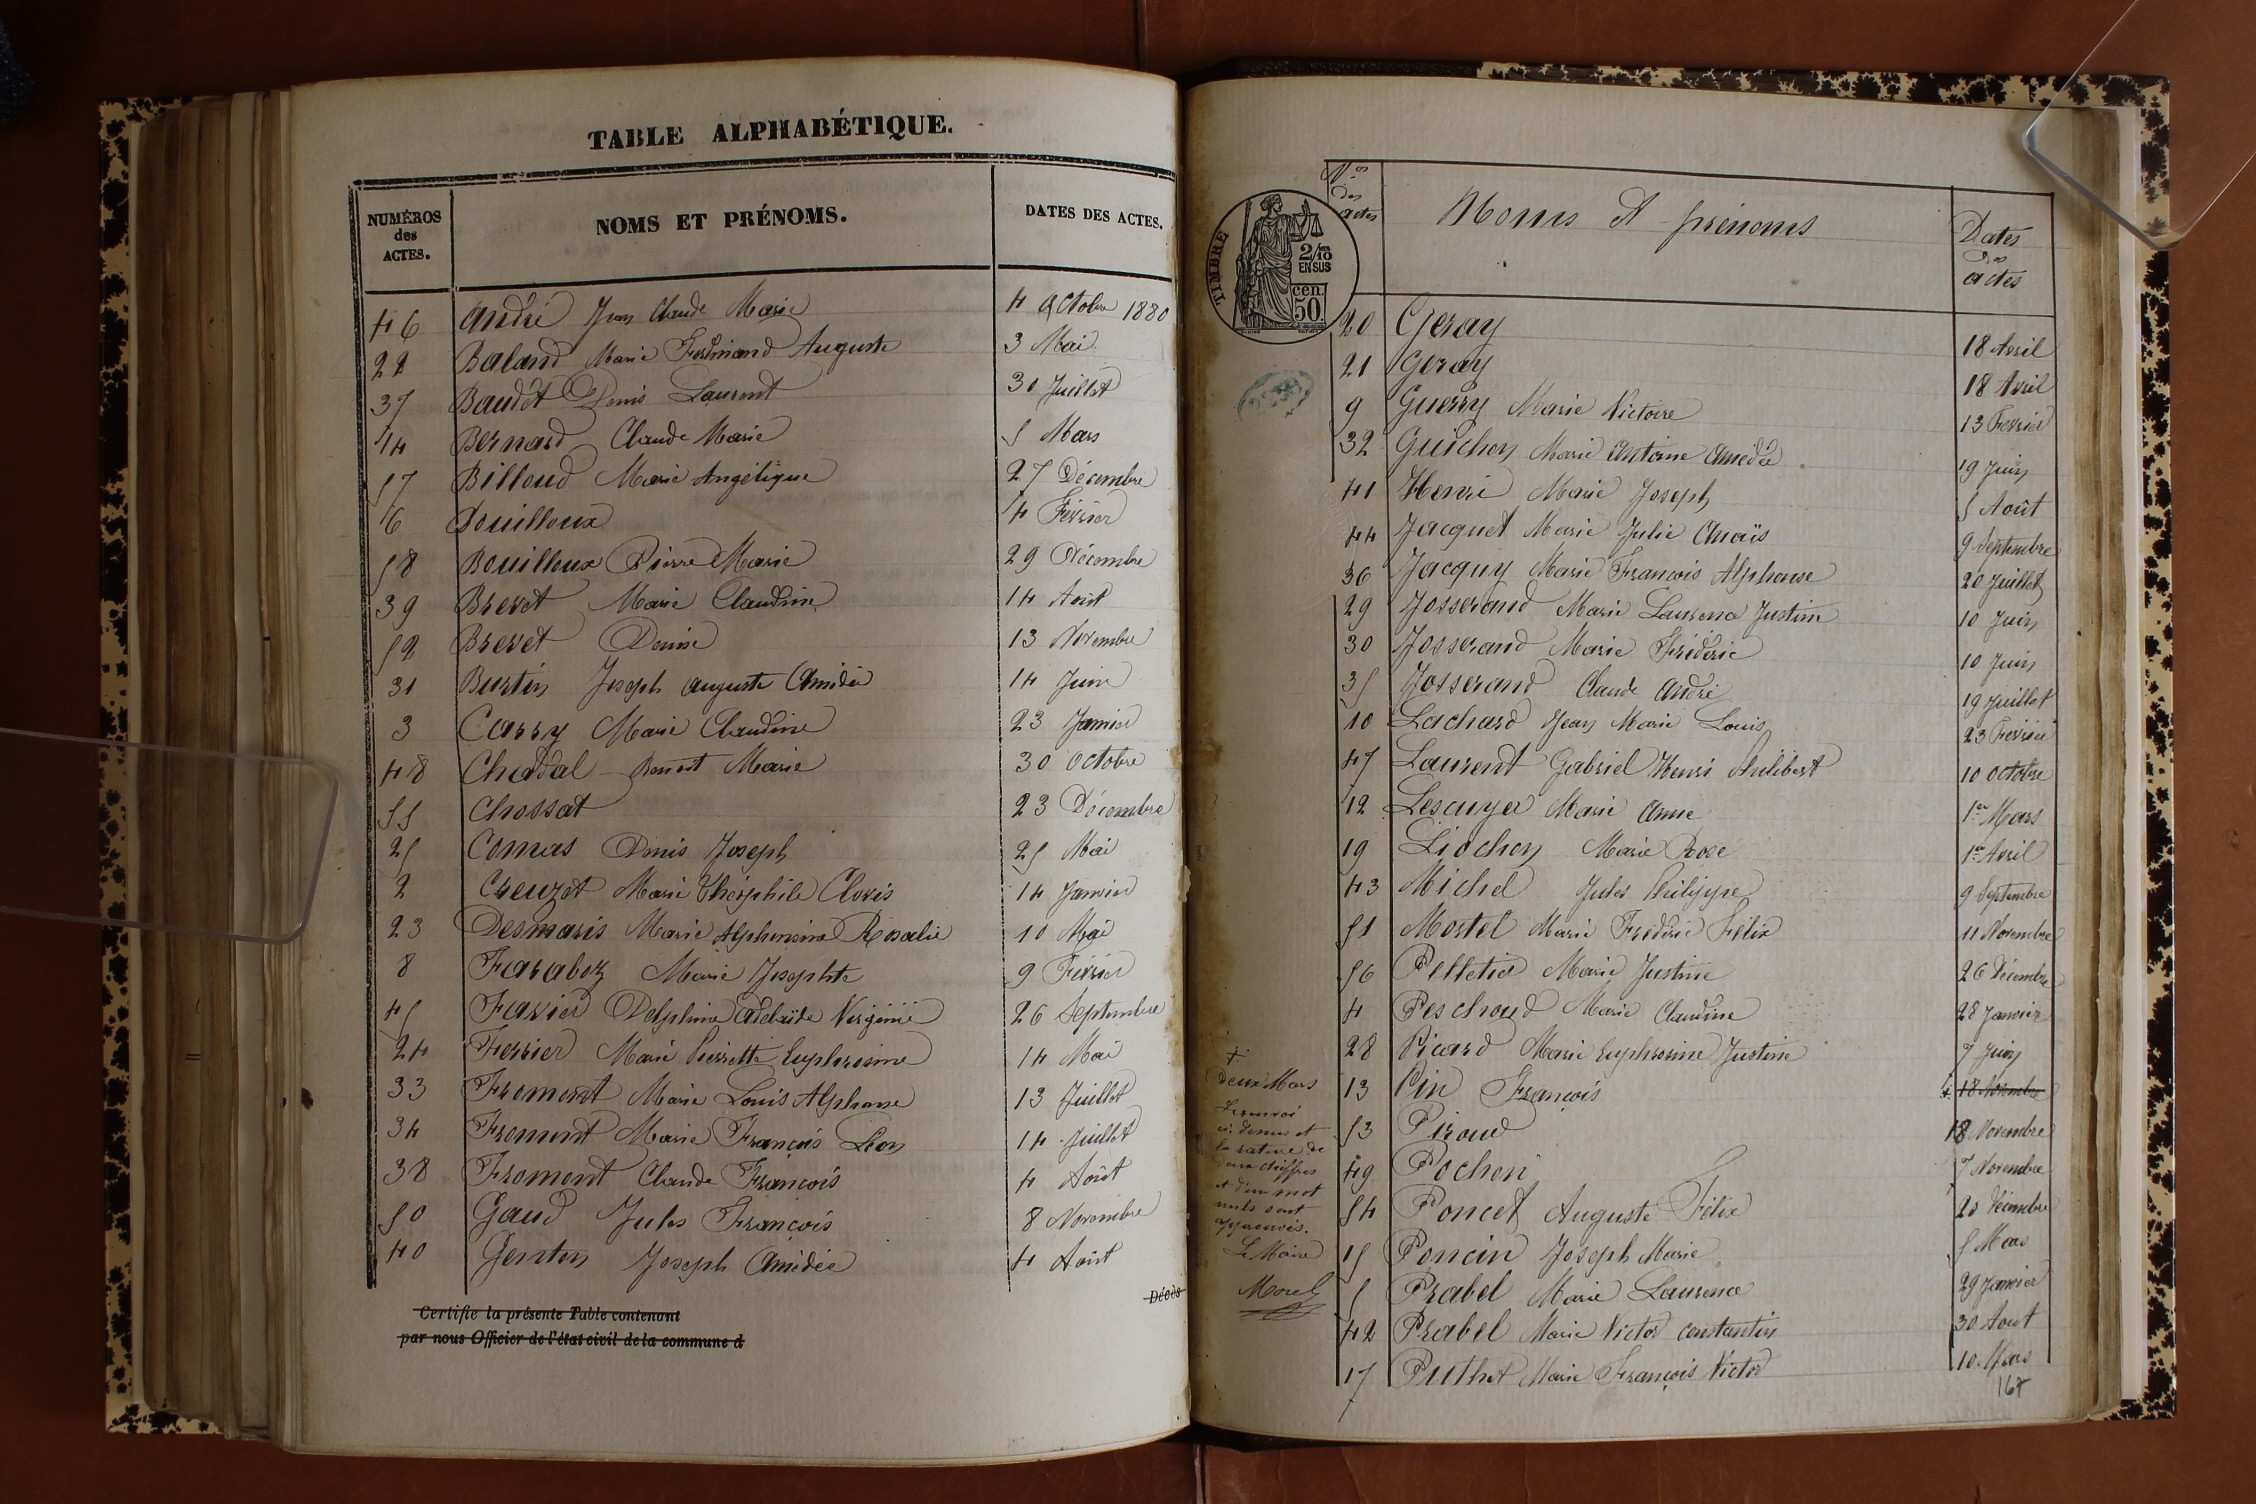 TABLE ALPHABÉTIQUE.
NUMÉROS des ACTES. NOMS ET PRÉNOMS. DATES DES ACTES.
46 André Jean Claude Marie 4 Octobre 1880
22 Baland Marie Ferdinand Auguste 3 Mai
37 Baudet Denis Laurent 30 Juillet
14 Bernard Claude Marie 5 Mars
57 Billoud Marie Angélique 27 Décembre
6 Bouilloux 4 Février
58 Bouilloux Pierre Marie 29 Décembre
39 Brevet Marie Claudine 14 Août
52 Brevet Denise 13 Novembre
31 Burtin Joseph Auguste Amédée 14 Juin
3 Carry Marie Claudine 23 Janvier
48 Chadal Benoit Marie 30 Octobre
55 Chossat 23 Décembre
25 Comas Denis Joseph 25 Mai
2 Creuzet Marie Théophile Clovis 14 Janvier
23 Desmaris Marie Alphonsine Rosalie 10 Mai
8 Faraboz Marie Josephte 9 Février
45 Favier Delphine Adelaïde Virginie 26 Septembre
24 Ferrier Marie Pierrette Euphrosine 14 Mai
33 Froment Marie Louis Alphonse 13 Juillet
34 Froment Marie François Léon 14 Juillet
38 Froment Claude François 4 Août
50 Gaud Jules François 8 Novembre
40 Genton Joseph Amédée 4 Août
Décès
Certifie la présente Table contenant
par nous Officier de l'état civil de la commune d
TIMBRE
2/10
EN SUS
cen.
50
Nos des actes Noms et prénoms Dates des actes
20 Geray 18 Avril
21 Geray 18 Avril
9 Guerry Marie Victoire 13 Fevrier
32 Guichon Marie Antoine Amédée 19 Juin
41 Henri Marie Joseph 5 Août
44 Jacquet Marie Julie Anaïs 9 Septembre
36 Jacquy Marie François Alphonse 20 Juillet
29 Josserand Marie Laurence Justine 10 Juin
30 Josserand Marie Frédéric 10 Juin
35 Josserand Claude André 19 Juillet
10 Lachard Jean Marie Louis 23 Fevrier
47 Laurent Gabriel Henri Philibert 10 Octobre
12 Lescuyer Marie Anne 1er Mars
19 Liochon Marie Rose 1er Avril
43 Michel Jules Philippe 9 Septembre
51 Mortel Marie Frédéric Félix 11 Novembre
56 Pelletier Marie Justine 26 Décembre
4 Peschoud Marie Claudine 28 Janvier
28 Picard Marie Euphrosine Justine 7 Juin
13 Pin François + 18 Novembre
53 Piroud 18 Novembre
49 Pochon 7 Novembre
54 Poncet Auguste Félix 20 Décembre
15 Poncin Joseph Marie 5 Mars
5 Prabel Marie Laurence 29 Janvier
42 Prabel Marie Victor Constantin 30 Aout
17 Puthet Marie François Victor 10 Mars
167
+
Deux Mars
Le renvoi
ci-dessus et
la rature de
deux chiffres
et d'un mot
nuls sont
approuvés.
Le Maire
Morel